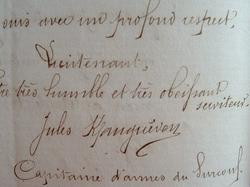 suis avec un profond respect,
Lieutenant,
tre très humble et très obéissant
serviteur
Jules
Capitaine d'armes du Surcouf